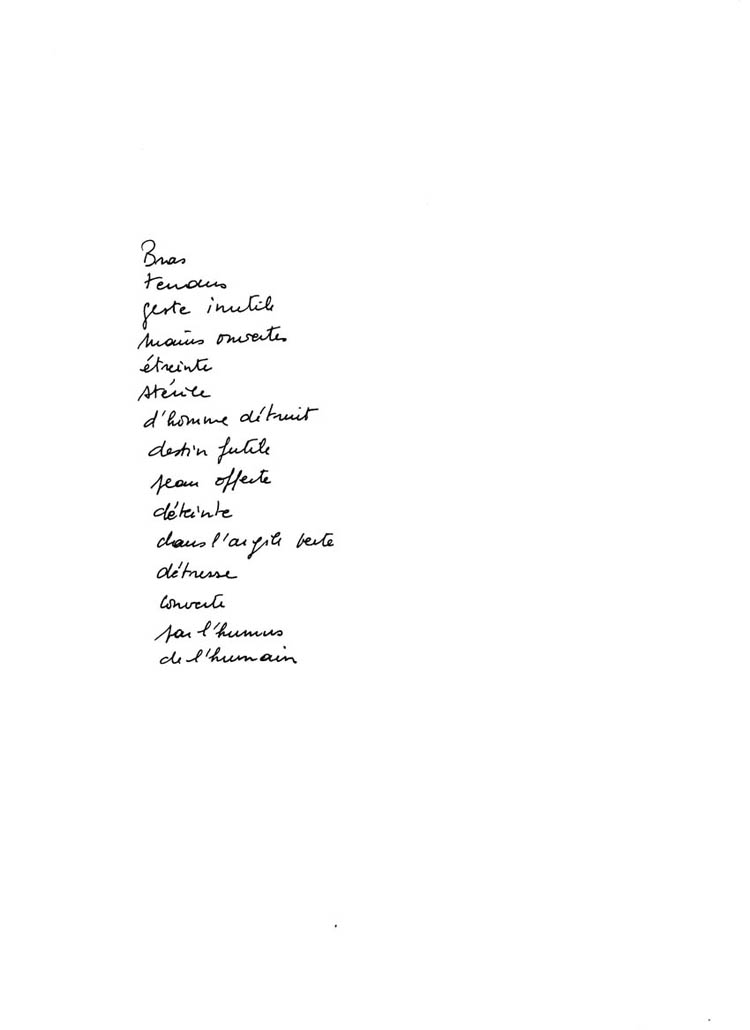 Bras
tendus
geste inutile
mains ouvertes
étreinte
stérile
d'homme détruit
destin futile
peau offerte
déteinte
dans l'argile verte
détresse
couverte
par l'humus
de l'humain